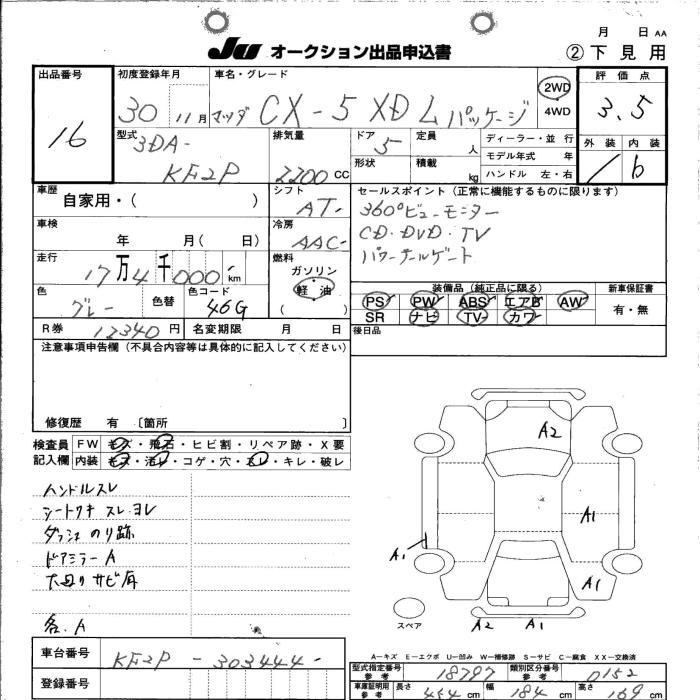 月 日 AA
JU オークション出品申込書 ② 下見用
出品番号
16
初度登録年月
30 11月
車名・グレード
マツダ CX-5 XD Lパッケージ
2WD
4WD
評価点
3.5
外装 内装
b
型式
3DA-
KF2P
排気量
2200 CC
ドア 5
形状
定員 人
積載 kg
ディーラー・並行
モデル年式 年
ハンドル 左・右
車歴
自家用・( )
シフト
AT
セールスポイント(正常に機能するものに限ります)
360°ビューモニター
CD・DVD・TV
パワーテールゲート
車検
年 月( 日)
冷房
AAC
走行
17万4千000km
燃料
ガソリン
軽油
( )
色
グレー
色替
色コード
46G
装備品(純正品に限る)
PS PW ABS エアB AW
SR ナビ TV カワ
新車保証書
有・無
R券 12340円
名変期限 月 日
後日品
注意事項申告欄(不具合内容等は具体的に記入してください)
修復歴 有〔箇所 〕
検査員
記入欄
FW キズ・飛石・ヒビ割・リペア跡・X要
内装 キズ・汚レ・コゲ・穴・スレ・キレ・破レ
ハンドルスレ
シートワキ スレ.ヨレ
ダッシュ のり跡
ドアミラーA
下廻りサビ有
各.A
A2
A1
A1
A1
スペア
A2 A1
A-キズ E-エクボ U-凹み W-補修跡 S-サビ C-腐食 XX-交換済
車台番号
KF2P - 303444
登録番号
型式指定番号
参考
18797
類別区分番号
参考
0152
車庫証明用
参考
長さ 454 cm
幅 184 cm
高さ 169 cm